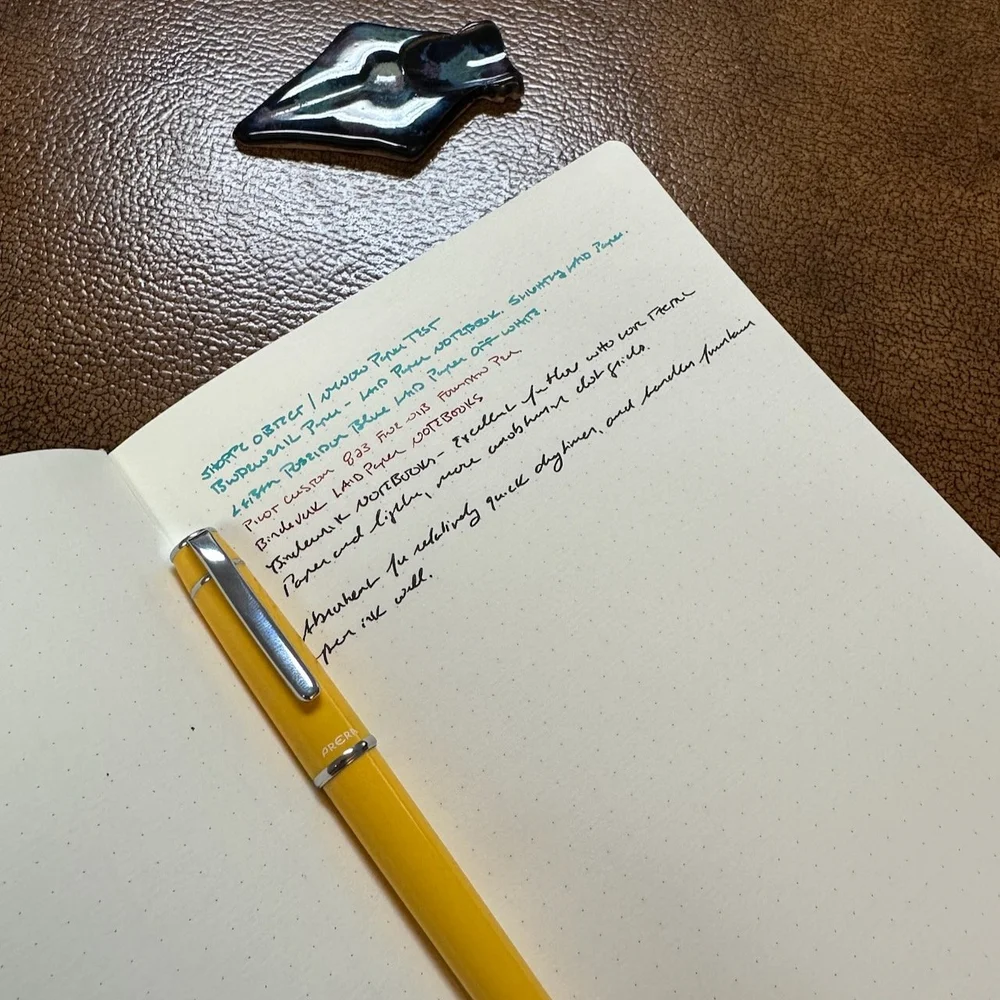 SHOPPE OBJECT / Paper TEST
BINDEWERK Paper - LAID Paper NOTEBOOK. SLIGHTLY LAID Paper.
LABAN POSEIDON Blue LAID Paper OFF-WHITE.
PILOT CUSTOM 823 Fine NIB FOUNTAIN Pen
Bindewerk LAID Paper NOTEBOOKS
Bindewerk NOTEBOOKS - Excellent for those who
Paper and lighter, more unobtrusive dot grids.
Absorbent for relatively quick drytimes, and handles fountain
pen ink well.
PRERA